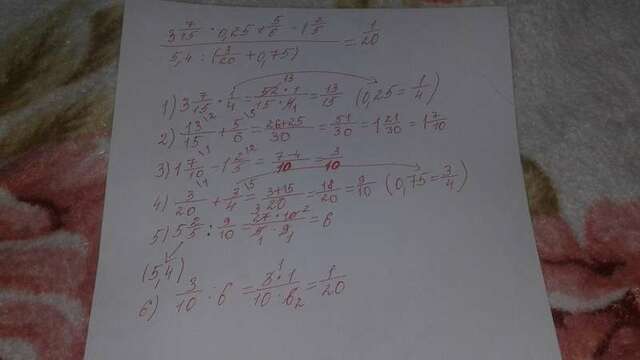 3 7/15 · 0,25 + 5/6 - 1 2/5
5,4 : (3/20 + 0,75) = 1/20
1) 3 7/15 · 1/4 = 52 · 1 / 15 · 4 = 13/15 (0,25 = 1/4)
2) 13/15 + 5/6 = 26+25/30 = 51/30 = 1 21/30 = 1 7/10
3) 1 7/10 - 1 2/5 = 7-4/10 = 3/10
4) 3/20 + 3/4 = 3+15/20 = 18/20 = 9/10 (0,75 = 3/4)
5) 5 2/5 : 9/10 = 27 · 10 / 5 · 9 = 6
(5,4)
6) 3/10 : 6 = 3 · 1 / 10 · 6 = 1/20